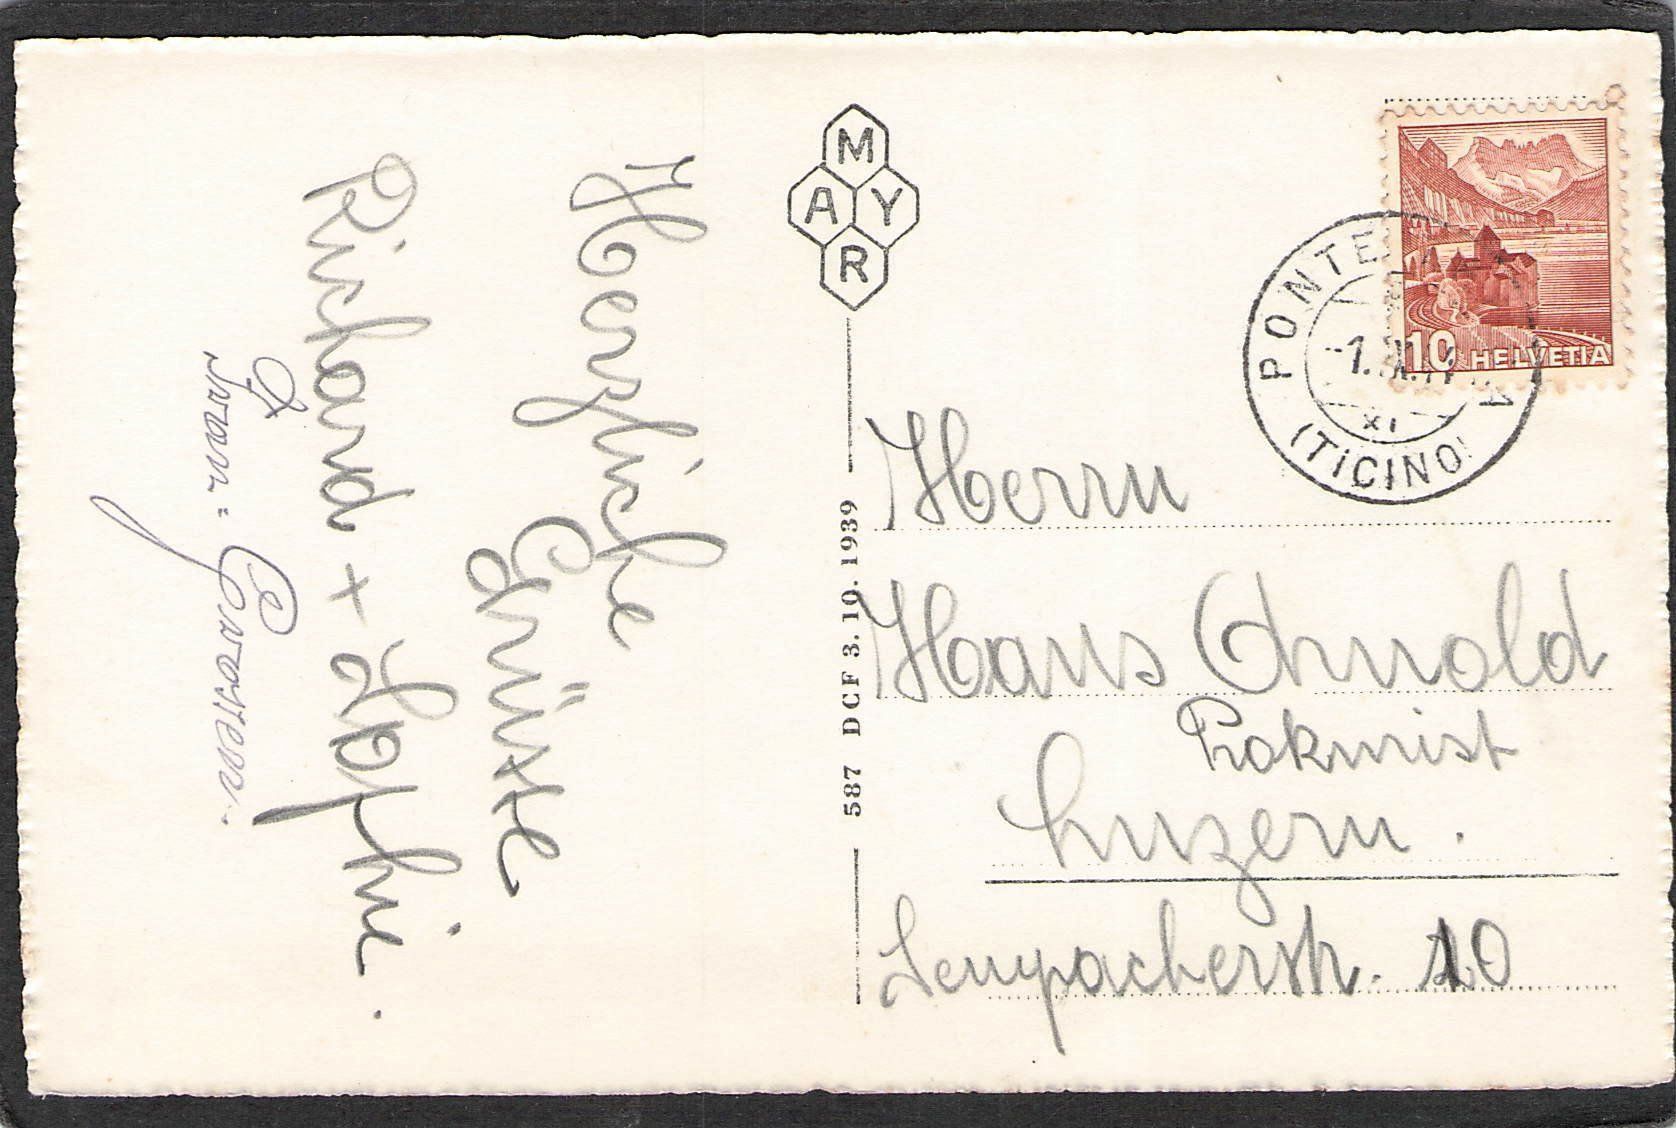 Herzliche
Grüsse
Richard + Sophie.
MAYR
587 DCF 3. 10. 1939
10 HELVETIA
PONTE
(TICINO)
XI
Herrn
Hans Arnold
Lokmist
Luzern.
Sempacherstr. 10